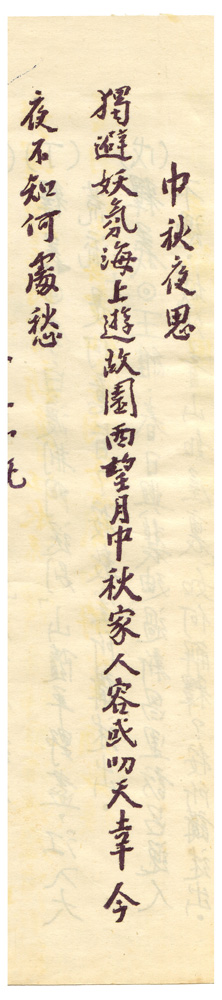 中秋夜思
獨避妖氛海上遊故園西望月中秋家人容或叨天幸今
夜不知何處愁